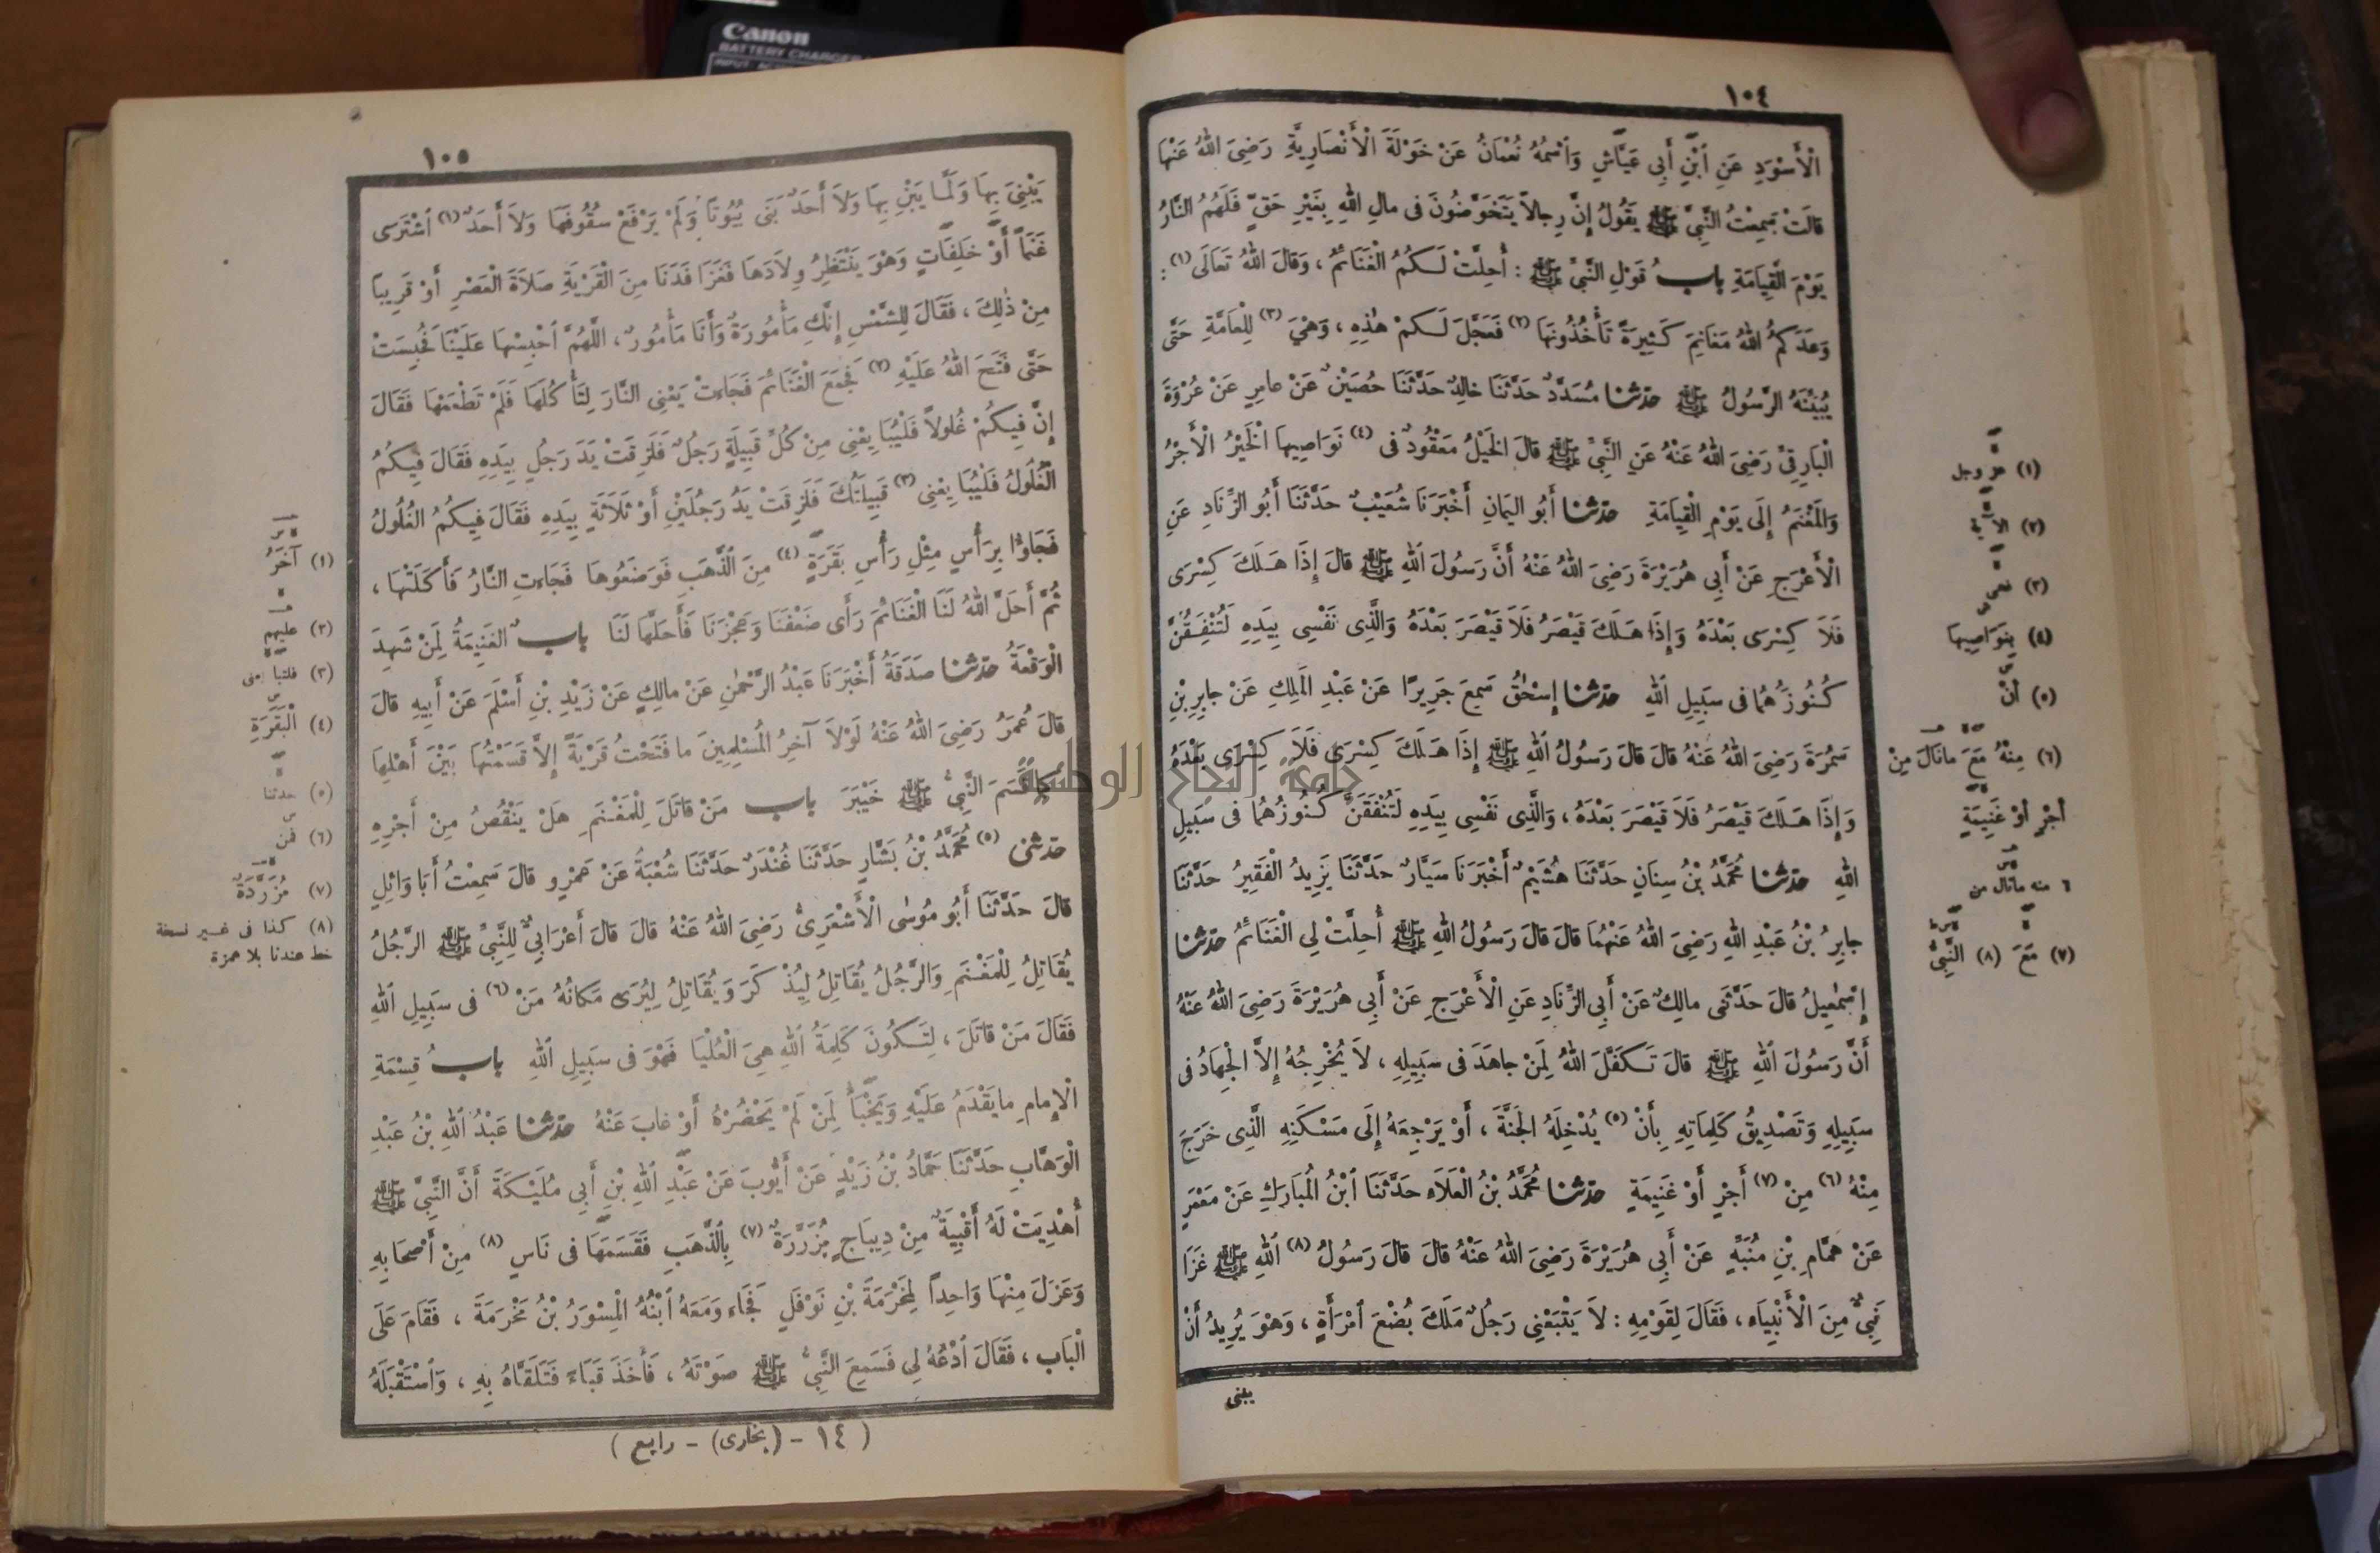 ١٠٤
الْأَسْوَدِ عَنِ ابْنِ أَبِي عَيَّاشٍ وَاسْمُهُ نُعْمَانُ عَنْ خَوْلَةَ الْأَنْصَارِيَّةِ رَضِيَ اللهُ عَنْهَا
قَالَتْ سَمِعْتُ النَّبِيَّ ﷺ يَقُولُ إِنَّ رِجالاً يَتَخَوَّضُونَ فى مالِ اللهِ بِغَيْرِ حَقٍّ فَلَهُمُ النَّارُ
يَوْمَ الْقِيَامَةِ بابُ قَوْلِ النَّبِيِّ ﷺ : أُحِلَّتْ لَكُمُ الْغَنَائمُ ، وَقالَ اللهُ تَعَالَى (١) :
وَعَدَكُمُ اللهُ مَغَانِمَ كَثِيرَةً تَأْخُذُونَهَا (٢) فَعَجَّلَ لَكُمْ هٰذِهِ ، وَهْيَ (٣) لِلْعَامَّةِ حَتَّى
يُبَيِّنَهُ الرَّسُولُ ﷺ حدّثنا مُسَدَّدٌ حَدَّثَنَا خالِدٌ حَدَّثَنَا حُصَيْنٌ عَنْ عامِرٍ عَنْ عُرْوَةَ
الْبَارِقِيِّ رَضِيَ اللهُ عَنْهُ عَنِ النَّبِيِّ ﷺ قالَ الخَيْلُ مَعْقُودٌ فى (٤) نَوَاصِيهَا الْخَيْرُ الْأَجْرُ
وَالْمَغْنَمُ إِلَى يَوْمِ الْقِيَامَةِ حدّثنا أَبُو الْيَمَانِ أَخْبَرَنَا شُعَيْبٌ حَدَّثَنَا أَبُو الزِّنَادِ عَنِ
الْأَعْرَجِ عَنْ أَبِي هُرَيْرَةَ رَضِيَ اللهُ عَنْهُ أَنَّ رَسُولَ اللهِ ﷺ قالَ إِذَا هَلَكَ كِسْرَى
فَلَا كِسْرَى بَعْدَهُ وَإِذَا هَلَكَ قَيْصَرُ فَلَا قَيْصَرَ بَعْدَهُ وَالَّذِى نَفْسِى بِيَدِهِ لَتُنْفِقُنَّ
كُنُوزَهُمَا فى سَبِيلِ اللهِ حدّثنا إِسْحٰقُ سَمِعَ جَرِيرًا عَنْ عَبْدِ الْمَلِكِ عَنْ جابِرِ بْنِ
سَمُرَةَ رَضِيَ اللهُ عَنْهُ قالَ قالَ رَسُولُ اللهِ ﷺ إِذَا هَلَكَ كِسْرَى فَلَا كِسْرَى بَعْدَهُ
وَإِذَا هَلَكَ قَيْصَرُ فَلَا قَيْصَرَ بَعْدَهُ ، وَالَّذِى نَفْسِى بِيَدِهِ لَتُنْفَقَنَّ كُنُوزُهُمَا فى سَبِيلِ
اللهِ حدّثنا مُحَمَّدُ بْنُ سِنَانٍ حَدَّثَنَا هُشَيْمٌ أَخْبَرَنَا سَيَّارٌ حَدَّثَنَا يَزِيدُ الْفَقِيرُ حَدَّثَنَا
جابِرُ بْنُ عَبْدِ اللهِ رَضِيَ اللهُ عَنْهُمَا قالَ قالَ رَسُولُ اللهِ ﷺ أُحِلَّتْ لِي الْغَنَائمُ حدّثنا
إِسْمٰعِيلُ قالَ حَدَّثَنِى مالِكٌ عَنْ أَبِي الزِّنَادِ عَنِ الْأَعْرَجِ عَنْ أَبِي هُرَيْرَةَ رَضِيَ اللهُ عَنْهُ
أَنَّ رَسُولَ اللهِ ﷺ قالَ تَكَفَّلَ اللهُ لِمَنْ جاهَدَ فى سَبِيلِهِ ، لَا يُخْرِجُهُ إِلاَّ الْجِهَادُ فى
سَبِيلِهِ وَتَصْدِيقُ كَلِمَاتِهِ بِأَنْ (٥) يُدْخِلَهُ الجَنَّةَ ، أَوْ يَرْجِعَهُ إِلَى مَسْكَنِهِ الَّذِى خَرَجَ
مِنْهُ (٦) مِنْ (٧) أَجْرٍ أَوْ غَنِيمَةٍ حدّثنا مُحَمَّدُ بْنُ الْعَلَاءِ حَدَّثَنَا ابْنُ الْمُبَارَكِ عَنْ مَعْمَرٍ
عَنْ هَمَّامِ بْنِ مُنَبِّهٍ عَنْ أَبِي هُرَيْرَةَ رَضِيَ اللهُ عَنْهُ قالَ قالَ رَسُولُ (٨) اللهِ ﷺ غَزَا
نَبِيٌّ مِنَ الْأَنْبِيَاءِ ، فَقَالَ لِقَوْمِهِ : لَا يَتْبَعْنِى رَجُلٌ مَلَكَ بُضْعَ امْرَأَةٍ ، وَهْوَ يُرِيدُ أَنْ
يبنى
(١) عز وجل
(٢) الآية
(٣) فهى
(٤) بِنَوَاصِيهَا
(٥) أَنْ
(٦) مِنْهُ مَعَ مانَالَ مِنْ
أَجْرٍ أَوْ غَنِيمَةٍ
٦ منه مانال من
(٧) مَعَ (٨) النَّبِيُّ
١٠٥
يَبْنِيَ بِهَا وَلَمَّا يَبْنِ بِهَا وَلَا أَحَدٌ بَنَى بُيُوتًا وَلَمْ يَرْفَعْ سُقُوفَهَا وَلَا أَحَدٌ (١) اشْتَرَى
غَنَمًا أَوْ خَلِفَاتٍ وَهْوَ يَنْتَظِرُ وِلَادَهَا فَغَزَا فَدَنَا مِنَ الْقَرْيَةِ صَلَاةَ الْعَصْرِ أَوْ قَرِيبًا
مِنْ ذٰلِكَ ، فَقَالَ لِلشَّمْسِ إِنَّكِ مَأْمُورَةٌ وَأَنَا مَأْمُورٌ ، اللَّهُمَّ احْبِسْهَا عَلَيْنَا فَحُبِسَتْ
حَتَّى فَتَحَ اللهُ عَلَيْهِ (٢) فَجَمَعَ الْغَنَائمَ فَجَاءَتْ يَعْنِى النَّارَ لِتَأْكُلَهَا فَلَمْ تَطْعَمْهَا فَقَالَ
إِنَّ فِيكُمْ غُلُولاً فَلْيُبَايِعْنِى مِنْ كُلِّ قَبِيلَةٍ رَجُلٌ فَلَزِقَتْ يَدُ رَجُلٍ بِيَدِهِ فَقَالَ فِيكُمُ
الْغُلُولُ فَلْيُبَايِعْنِى (٣) قَبِيلَتُكَ فَلَزِقَتْ يَدُ رَجُلَيْنِ أَوْ ثَلَاثَةٍ بِيَدِهِ فَقَالَ فِيكُمُ الْغُلُولُ
فَجَاؤُا بِرَأْسٍ مِثْلِ رَأْسِ بَقَرَةٍ (٤) مِنَ الذَّهَبِ فَوَضَعُوهَا فَجَاءَتِ النَّارُ فَأَكَلَتْهَا ،
ثُمَّ أَحَلَّ اللهُ لَنَا الْغَنَائمَ رَأَى ضَعْفَنَا وَعَجْزَنَا فَأَحَلَّهَا لَنَا بابٌ الْغَنِيمَةُ لِمَنْ شَهِدَ
الْوَقْعَةَ حدّثنا صَدَقَةُ أَخْبَرَنَا عَبْدُ الرَّحْمٰنِ عَنْ مالِكٍ عَنْ زَيْدِ بْنِ أَسْلَمَ عَنْ أَبِيهِ قالَ
قالَ عُمَرُ رَضِيَ اللهُ عَنْهُ لَوْلَا آخِرُ الْمُسْلِمِينَ ما فَتَحْتُ قَرْيَةً إِلاَّ قَسَمْتُهَا بَيْنَ أَهْلِهَا
كَمَا قَسَمَ النَّبِيُّ ﷺ خَيْبَرَ باب مَنْ قاتَلَ لِلْمَغْنَمِ هَلْ يَنْقُصُ مِنْ أَجْرِهِ
حدّثنى (٥) مُحَمَّدُ بْنُ بَشَّارٍ حَدَّثَنَا غُنْدَرٌ حَدَّثَنَا شُعْبَةُ عَنْ عَمْرٍو قالَ سَمِعْتُ أَبَا وَائِلٍ
قالَ حَدَّثَنَا أَبُو مُوسٰى الْأَشْعَرِيُّ رَضِيَ اللهُ عَنْهُ قالَ قالَ أَعْرَابِيٌّ لِلنَّبِيِّ ﷺ الرَّجُلُ
يُقَاتِلُ لِلْمَغْنَمِ وَالرَّجُلُ يُقَاتِلُ لِيُذْكَرَ وَيُقَاتِلُ لِيُرَى مَكانُهُ مَنْ (٦) فى سَبِيلِ اللهِ
فَقَالَ مَنْ قاتَلَ ، لِتَكُونَ كَلِمَةُ اللهِ هِيَ الْعُلْيَا فَهْوَ فى سَبِيلِ اللهِ بابُ قِسْمَةِ
الْإِمامِ مايَقْدَمُ عَلَيْهِ وَيَخْبَأُ لِمَنْ لَمْ يَحْضُرْهُ أَوْ غابَ عَنْهُ حدّثنا عَبْدُ اللهِ بْنُ عَبْدِ
الْوَهَّابِ حَدَّثَنَا حَمَّادُ بْنُ زَيْدٍ عَنْ أَيُّوبَ عَنْ عَبْدِ اللهِ بْنِ أَبِي مُلَيْكَةَ أَنَّ النَّبِيَّ ﷺ
أُهْدِيَتْ لَهُ أَقْبِيَةٌ مِنْ دِيبَاجٍ مُزَرَّرَةٌ (٧) بِالذَّهَبِ فَقَسَمَهَا فى نَاسٍ (٨) مِنْ أَصْحَابِهِ
وَعَزَلَ مِنْهَا وَاحِدًا لِمَخْرَمَةَ بْنِ نَوْفَلٍ فَجَاءَ وَمَعَهُ ابْنُهُ الْمِسْوَرُ بْنُ مَخْرَمَةَ ، فَقَامَ عَلَى
الْبَابِ ، فَقَالَ ادْعُهُ لِي فَسَمِعَ النَّبِيُّ ﷺ صَوْتَهُ ، فَأَخَذَ قَبَاءً فَتَلَقَّاهُ بِهِ ، وَاسْتَقْبَلَهُ
( ١٤ - (بخارى) - رابع )
(١) آخَرُ
(٢) عليهم
(٣) فلتبايعنى
(٤) الْبَقَرَةِ
(٥) حدثنا
(٦) فمن
(٧) مُزَرَّدَةٌ
(٨) كذا فى غير نسخة
خط عندنا بلا همزة
جامعة النجاح الوطنية
Canon
BATTERY CHARGER